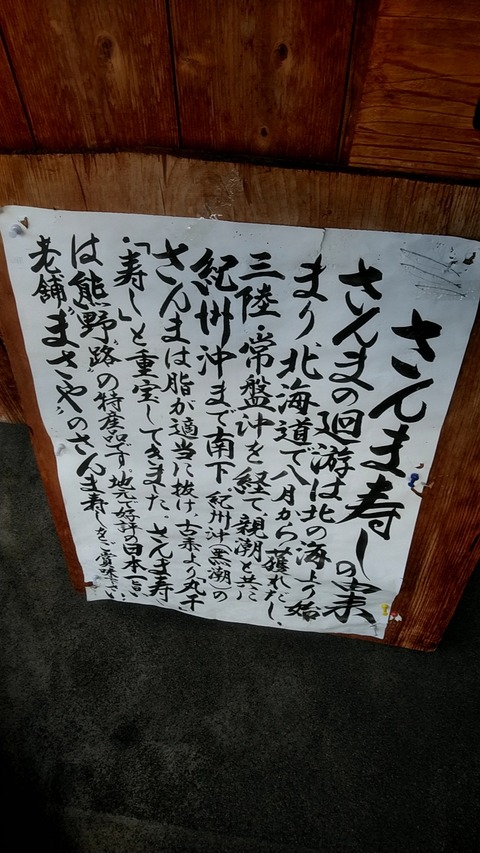 さんま寿しの栞
さんまの廻游は北の海より始
まり、北海道で八月から獲れだし、
三陸・常盤沖を経て親潮と共に
紀州沖まで南下 紀州沖(黒潮)の
さんまは脂が適当に抜け 古来より丸干
「寿し」と重宝してきました さんま寿し
は熊野路の特産品です。地元で好評の日本一旨い
老舗“まさや”のさんま寿しをご賞味下さい